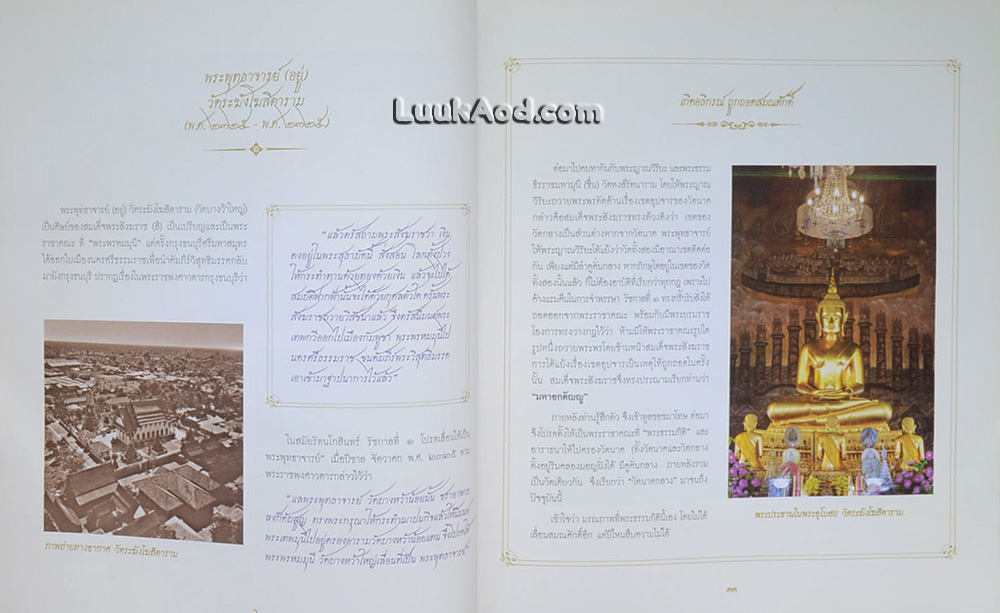 พระพุทธาจารย์ (อยู่)
วัดระฆังโฆสิตาราม
(พ.ศ. ๒๓๒๕ - พ.ศ. ๒๓๒๕)
LuukAod.com
พระพุทธาจารย์ (อยู่) วัดระฆังโฆสิตาราม (วัดบางว้าใหญ่)
เป็นศิษย์ของสมเด็จพระสังฆราช (สี) เป็นเปรียญและเป็นพระ
ราชาคณะ ที่ "พระพรหมมุนี" แต่ครั้งกรุงธนบุรีศรีมหาสมุทร
ได้ออกไปเมืองนครศรีธรรมราชเพื่อนำคัมภีร์วิสุทธิมรรคกลับ
มายังกรุงธนบุรี ปรากฏเรื่องในพระราชพงศาวดารกรุงธนบุรีว่า
ภาพถ่ายทางอากาศ วัดระฆังโฆสิตาราม
"แล้วตรัสถามพระสังฆราชว่า เงิน
คงอยู่ในพระสุถาบัตนี้ สั่งสอน โลกทั้งปวง
ให้กระทำทานด้วยทองด้วยเงิน แล้วจะไปได้
สมบัติฟากฟ้านั้นจะได้ด้วยกุศลตัวใด ครั้นพระ
สังฆราชถวายวิสัชนาแล้ว จึงตรัสนิมนต์พระ
เทพกวีออกไปเมืองกัมพูชา พระพรหมมุนีไป
นครศรีธรรมราช ขนคัมภีร์พระวิสุทธิมรรค
เอาเข้ามาฐาปนาการไว้แล้ว"
ในสมัยรัตนโกสินทร์ รัชกาลที่ ๑ โปรดเลื่อนให้เป็น
พระพุทธาจารย์" เมื่อปีขาล จัตวาศก พ.ศ. ๒๓๒๕ ตาม
พระราชพงศาวดารกล่าวไว้ว่า
"แลพระพุทธาจารย์ วัดบางหว้าน้อยนั้น ชราอาพาธ
ลงก็ดับสูญ ทรงพระกรุณาให้กระทำฌาปนกิจแล้วให้นิมนต์
พระเทพมุนีไปอยู่ครองอารามวัดบางหว้าน้อยแทน จึงโปรดให้
พระพรหมมุนี วัดบางหว้าใหญ่เลื่อนที่เป็น พระพุทธาจารย์"
เกิดอธิกรณ์ ถูกถอดสมณศักดิ์
ต่อมาไปคบหากันกับพระญาณวิริยะ และพระธรรม
ธิรราชมหามุนี (ชื่น) วัดหงส์รัตนาราม โดยให้พระญาณ
วิริยะถวายพระพรคัดค้านเรื่องเขตอุปจารของวัดนาค
กล่าวคือสมเด็จพระสังฆราชทรงท้วงติงว่า เขตของ
วัดกลางเป็นส่วนต่างหากจากวัดนาค พระพุทธาจารย์
ให้พระญาณวิริยะโต้แย้งว่าวัดทั้งสองมีอาณาเขตติดต่อ
กัน เพียงแต่มีลำคูคั่นกลาง หากภิกษุใดอยู่ในเขตของวัด
ทั้งสองนั้นแล้ว ก็ไม่ต้องอาบัติที่เรียกว่าทุกกฏ เพราะไป
ค้างแรมคืนในการจำพรรษา รัชกาลที่ ๑ ทรงกริ้วรับสั่งให้
ถอดออกจากพระราชาคณะ พร้อมกับมีพระบรมราช
โองการทรงวางกฎไว้ว่า ห้ามมิให้พระราชาคณะรูปใด
รูปหนึ่งถวายพระพรโดยข้ามหน้าสมเด็จพระสังฆราช
การโต้แย้งเรื่องเขตอุปจารเป็นเหตุให้ถูกถอดในครั้ง
นั้น สมเด็จพระสังฆราชจึงทรงประณามเรียกท่านว่า
"มหาอกตัญญู"
ภายหลังท่านรู้สึกตัว จึงเข้าทูลขอขมาโทษ ต่อมา
จึงโปรดตั้งให้เป็นพระราชาคณะที่ "พระธรรมกิติ" และ
อาราธนาให้ไปครองวัดนาค (ทั้งวัดนาคและวัดกลาง
ตั้งอยู่ริมคลองมอญฝั่งใต้ มีคูคั่นกลาง ภายหลังรวม
เป็นวัดเดียวกัน จึงเรียกว่า "วัดนาคกลาง" มาจนถึง
ปัจจุบันนี้
เข้าใจว่า มรณภาพที่พระธรรมกิตินี้เอง โดยไม่ได้
เลื่อนสมณศักดิ์อีก แต่ปีไหนสืบความไม่ได้
พระประธานในพระอุโบสถ วัดระฆังโฆสิตาราม
๓๓